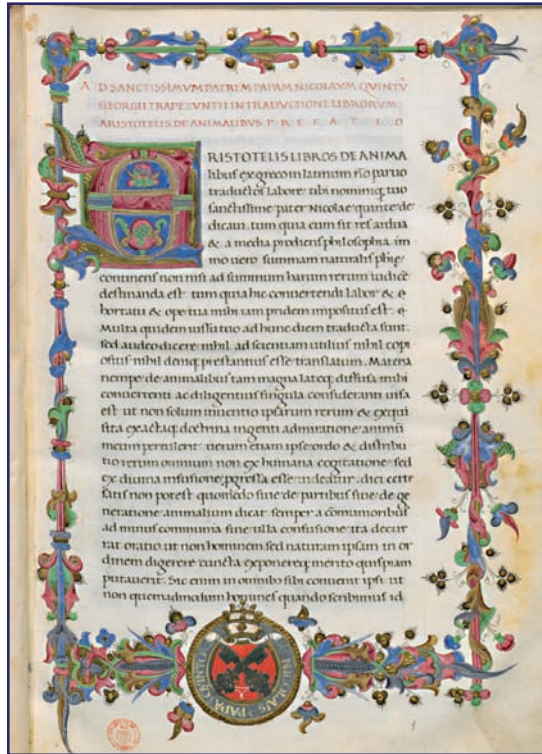 AD SANCTISSIMVM PATREM PAPAM NICOLAVM QVINTŪ
GEORGII TRAPEZVNTII IN TRADVCTIONE LIBRORVM
ARISTOTELIS DE ANIMALIBVS PREFATIO
ARISTOTELIS LIBROS DE ANIMA
libus ex greco in latinum nō paruo
traductos labore tibi nominiq; tuo
sanctissime pater Nicolae quinte de
dicaui. tum quia cum sit res ardua
& a media prodiens philosophia. im
mo uero summam naturalis phię
continens non nisi ad summum harum rerum iudicē
destinanda est. tum quia hic conuertendi labor &
hortatu & ope tua mihi iam pridem impositus est.
Multa quidem iussu tuo ad hunc diem traducta sunt.
sed audeo dicere nihil ad scientiam utilius nihil copi
osius nihil deniq; prestantius esse translatum. Materia
nempe de animalibus tam magna lateq; diffusa mihi
conuertenti ac diligentius singula consideranti uisa
est ut non solum inuentio ipsarum rerum & exqui
sita exactaq; doctrina ingenti admiratione animū
meum pertulerit uerum etiam ipse ordo & distribu
tio rerum omnium non ex humana cogitatione sed
ex diuina infusione, pgressa esse uideatur. dici enim
satis non potest quomodo siue de partibus siue de ge
neratione animalium dicat semper a comunioribus
ad minus communia sine ulla confusione ita decur
rat oratio ut non hominem sed naturam ipsam in or
dinem digerere cuncta exponereq; merito quispiam
putauerit. Sic enim in omnibus sibi conuenit ipsi ut
non quemadmodum homines quando scribimus id
NICOLAVS PAPA QVINTO